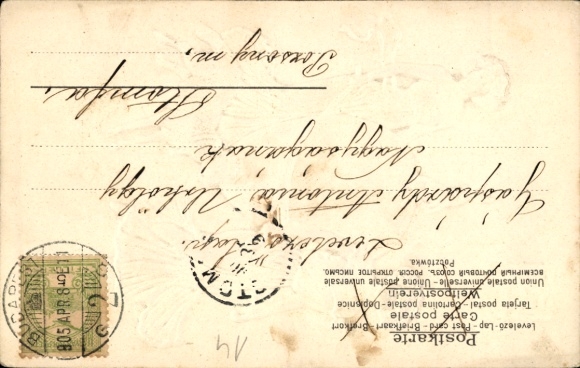 Postkarte
Levelező-Lap - Post card - Briefkaart - Brefkort
Carte postale
Tarjeta postal - Cartolina postale - Dopisnice
Weltpostverein
Union postale universelle - Unione postale universale
ВСЕМІРНЫЙ ПОЧТОВЫЙ СОЮЗЪ. РОССІЯ. ОТКРЫТОЕ ПИСЬМО.
Pocztówka.
Levelező lap.
Gáspárdy Antónia Urhölgy
Nagyságának
Stomfa,
Pozsony m.
BUDAPEST
905 APR 8
STOM
14